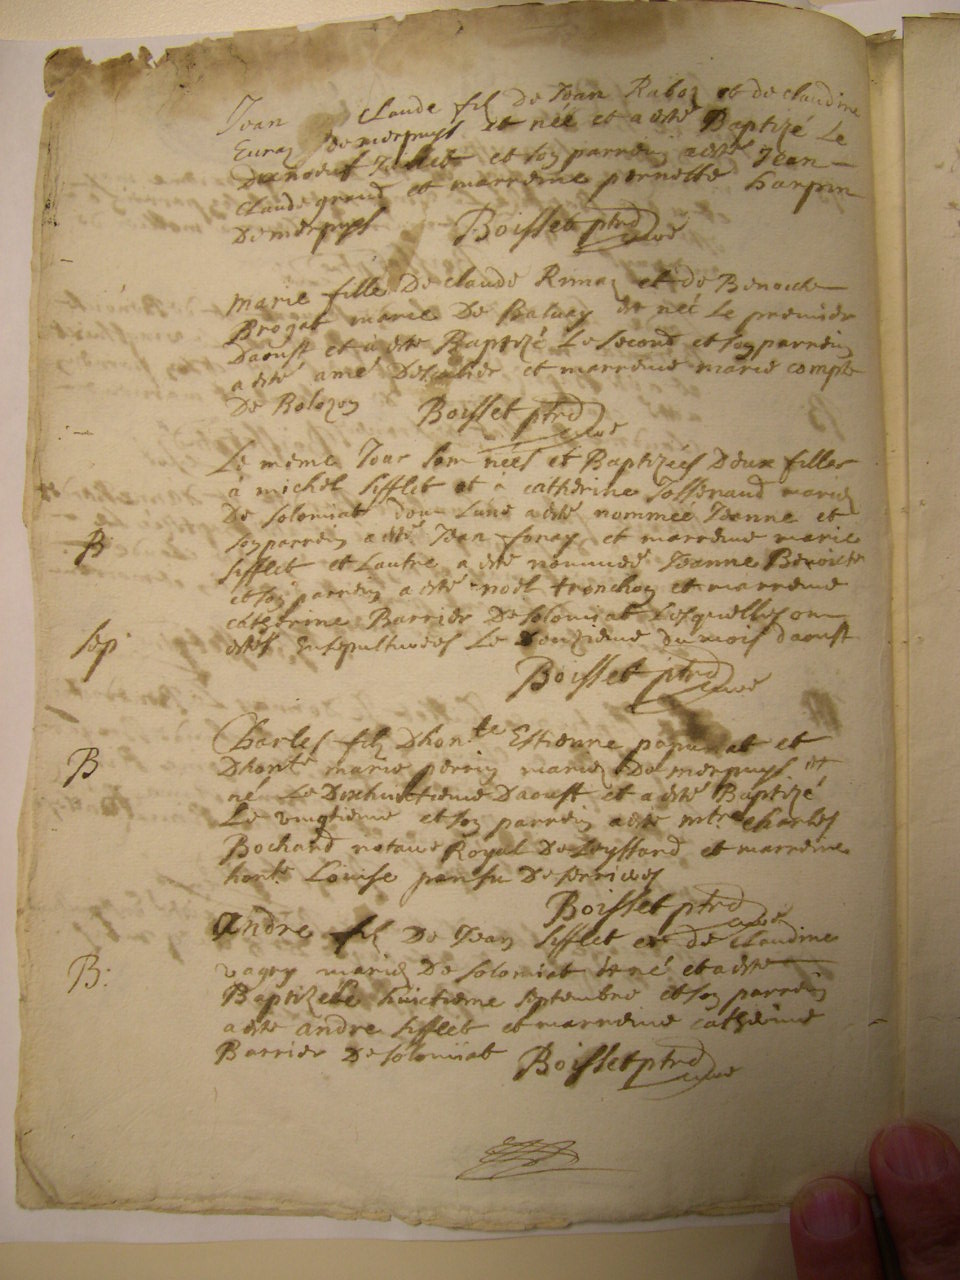 Jean Claude fils de Jean Raboz et de claudine
de merpuys et né et a esté Baptizé Le
Dixneuf Juillet et son parrein a esté Jean
claude et marreine pernette harpin
De merpuys Boisset ptre
marie fille De claude et de Benoicte
Brogat mariez De est née Le premier
Daoust et a esté Baptizé Le second et son parrein
a esté amé et marreine marie compte
De Bolozon Boisset ptre
Le meme Jour sont nées et Baptizées Deux filles
à michel sifflet et à catherine Josserand mariez
De solomiat dont Lune a esté nommée Jeanne et
B
son parrein a esté Jean et marreine marie
sifflet et Lautre a esté nommée Jeanne Benoicte
et son parrein a esté noel tronchon et marreine
catherine Barrier De solomiat Lesquelles on
sep
estés Ensepulturées Le du mois daoust
Boisset ptre
Charles fils Dhon.te Estienne papuniat et
B
Dhon.te marie perrin mariez De merpuys et
né Le Dixhuictieme Daoust et a esté Baptizé
Le vingtieme et son parrein a esté mtre charles
Bochard notaire Royal De Leyssard et marreine
hon.te Louise De serrieres
Boisset ptre
andre fils De Jean sifflet et de claudine
B:
mariez De solomiat et né et a esté
Baptizé Le huictieme septembre et son parrein
a esté andre sifflet et marreine catherine
Barrier De solomiat Boisset ptre